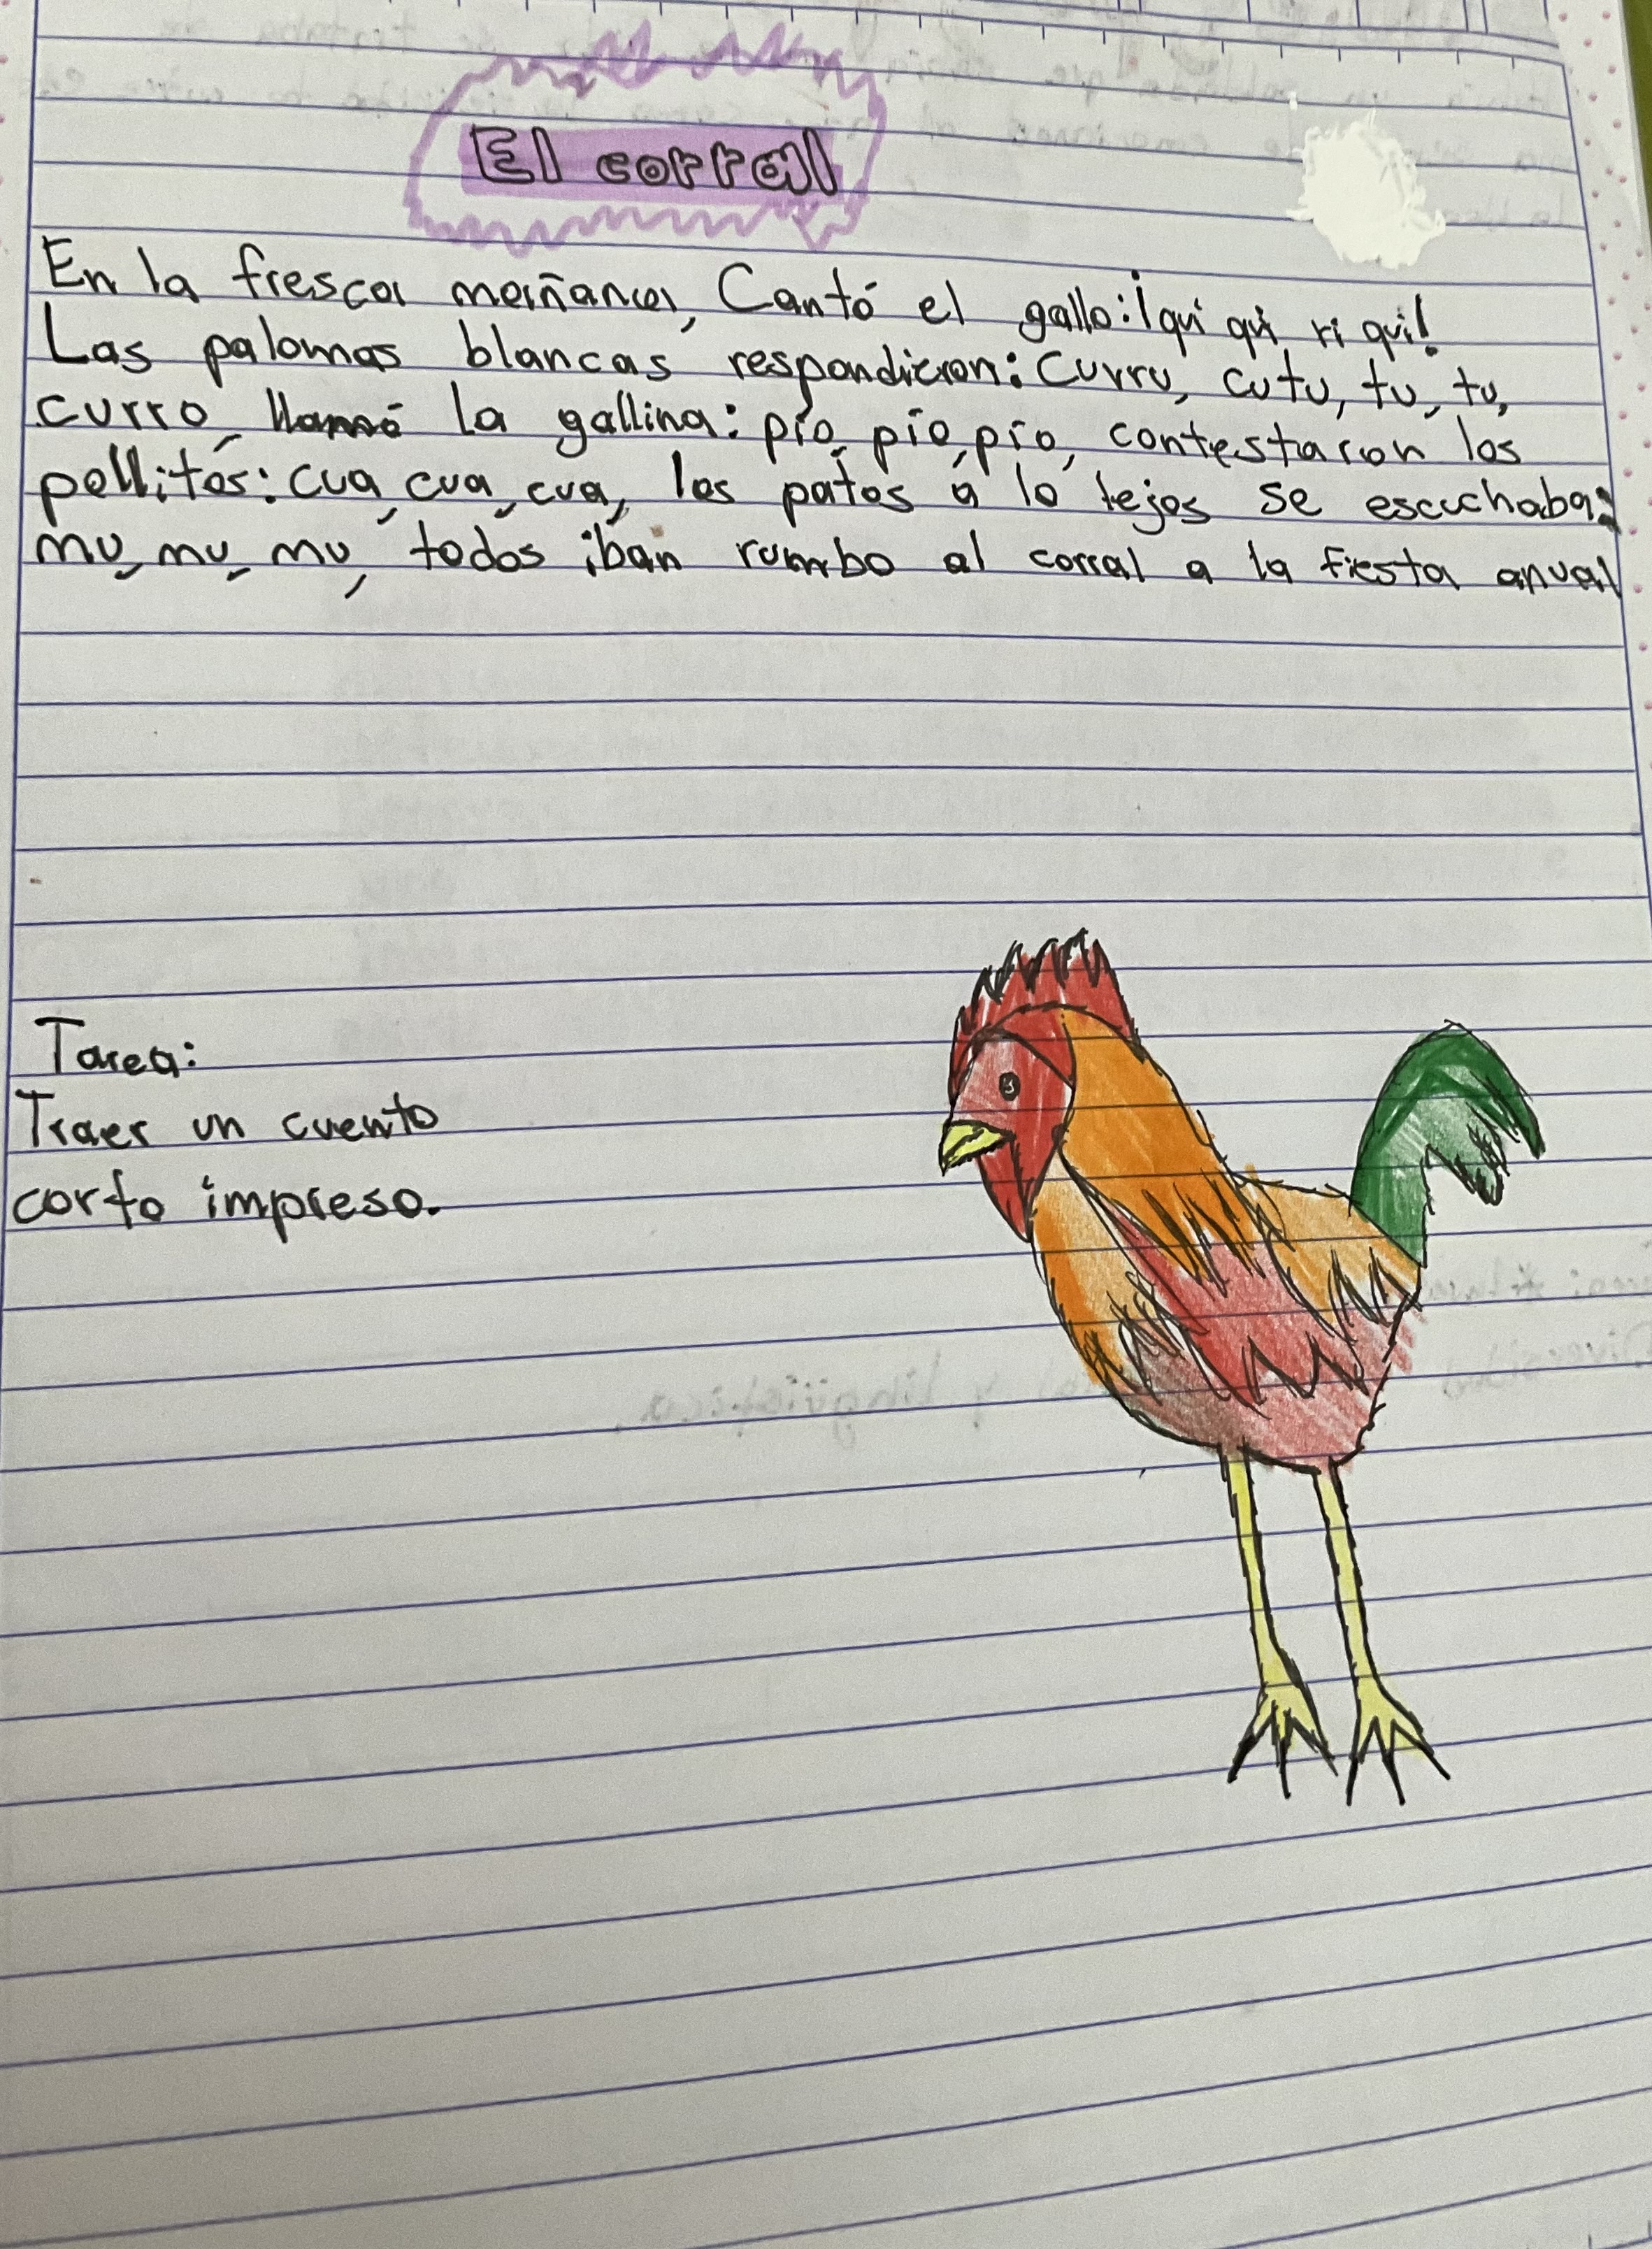 El corral
En la fresca mañana, Cantó el gallo: ¡qui qui ri qui!
Las palomas blancas respondieron: Curru, cutu, tu, tu,
curro, llamó la gallina: pío, pío, pío, contestaron los
pollitos: cua, cua, cua, los patos a lo lejos se escuchaba:
mu, mu, mu, todos iban rumbo al corral a la fiesta anual
Tarea:
Traer un cuento
corto impreso.